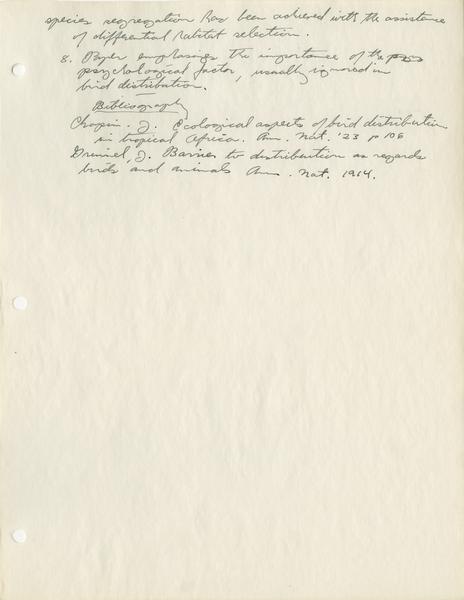 species segregation has been achieved with the assistance
of differential habitat selection.
8. Paper emphasizes the importance of the
psychological factor, usually ignored in
bird distribution.
Bibliography
Chapin. J. Ecological aspects of bird distribution
in tropical Africa. Am. Nat. '23 p 106
Grinnel, J. Barriers to distribution as regards
birds and animals Am. Nat. 1914.